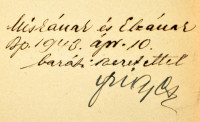 Miszának és Elzának
Bp. 1948. ápr. 10.
baráti szeretettel